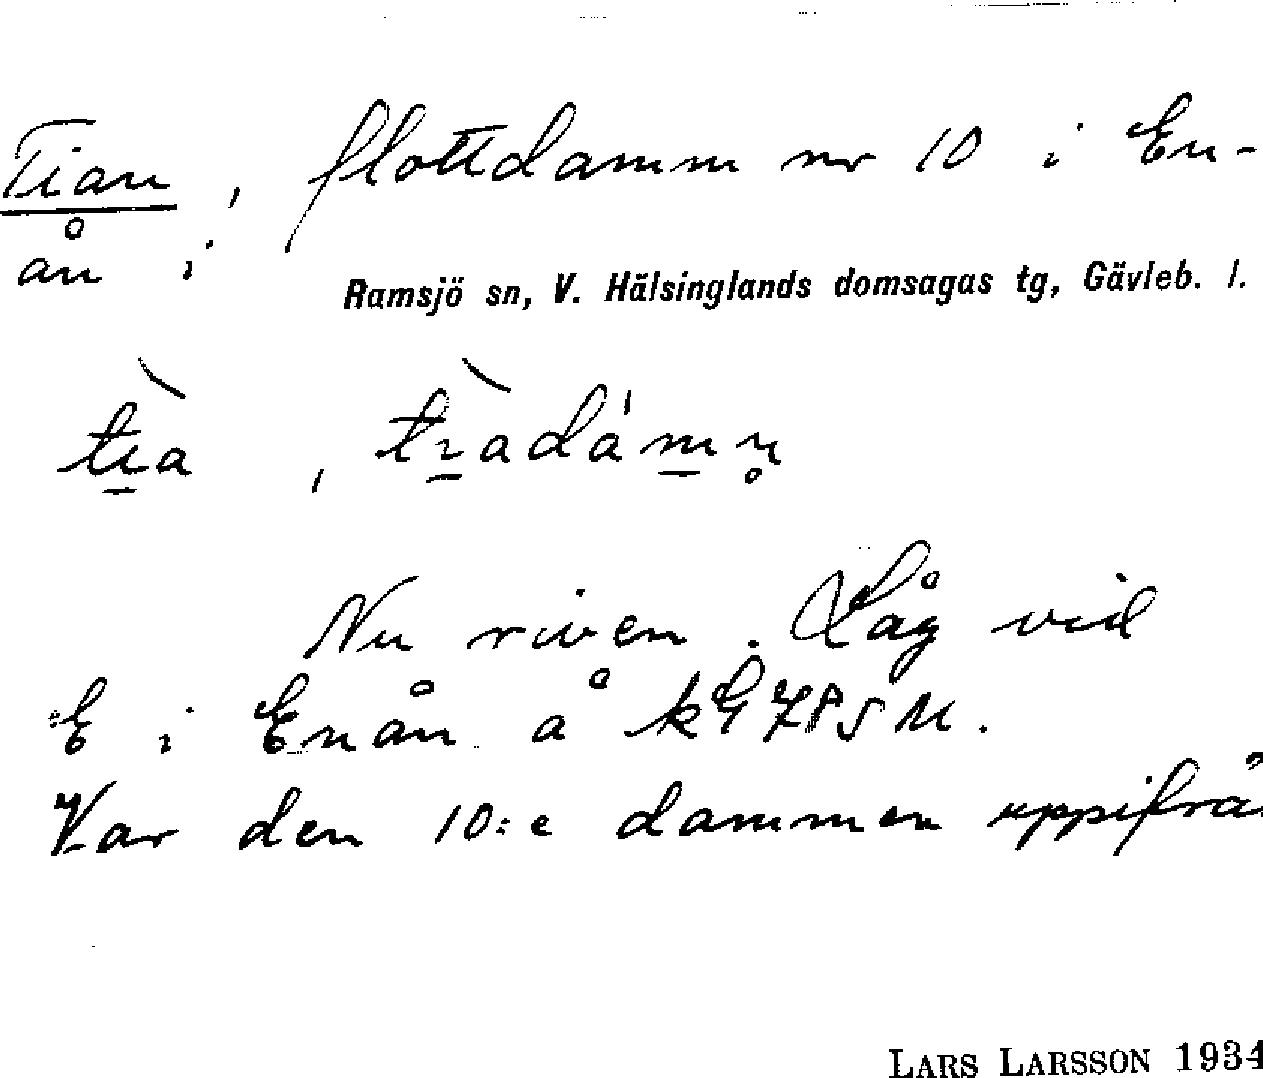 Tian, flottdamm nr 10 i En-
ån i
Ramsjö sn, V. Hälsinglands domsagas tg, Gävleb. l.
tı̱̀a, tı̱̀adám̱n̥
Nu riven. Låg vid
E i Enån å
Var den 10:e dammen uppifrå
LARS LARSSON 1934